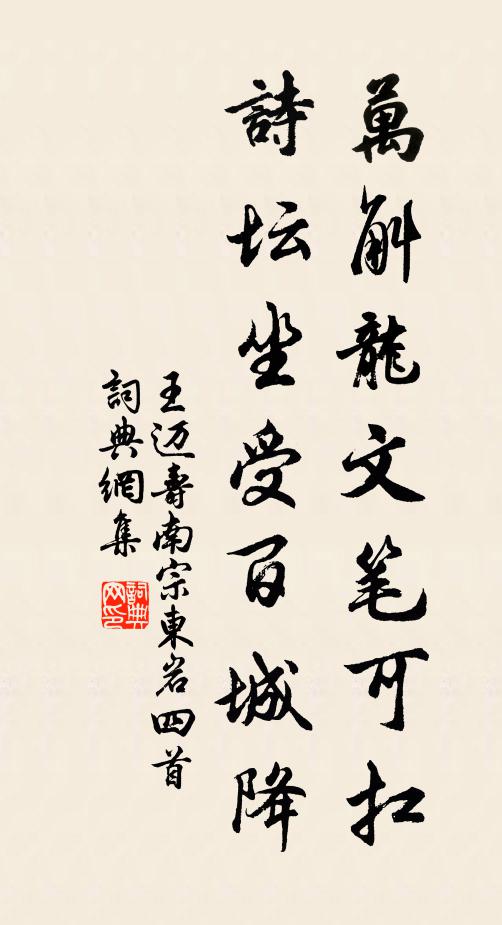 萬斛龍文笔可扛
詩坛坐受百城降
王迈壽南宗東岩四首
詞典網集
詞典网印